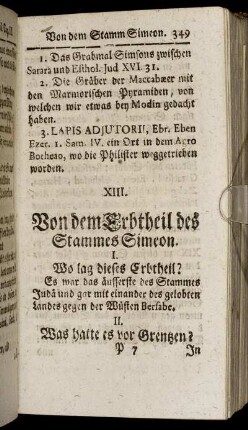 Von dem Stamm Simeon. 349
1. Das Grabmal Simsons zwischen
Saraa und Esthol. Jud XVI. 31.
2. Die Gräber der Maccabæer mit
den Marmorischen Pyramiden, von
welchen wir etwas bey Modin gedacht
haben.
3. LAPIS ADJUTORII, Ebr. Eben
Ezer. 1. Sam. IV. ein Ort in dem Agro
Bochæo, wo die Philister weggetrieben
worden.
XIII.
Von dem Erbtheil des
Stammes Simeon.
I.
Wo lag dieses Erbtheil?
Es war das äusserste des Stammes
Judä und gar mit einander des gelobten
Landes gegen der Wüsten Bersabe.
II.
Was hatte es vor Grentzen?
P 7 In